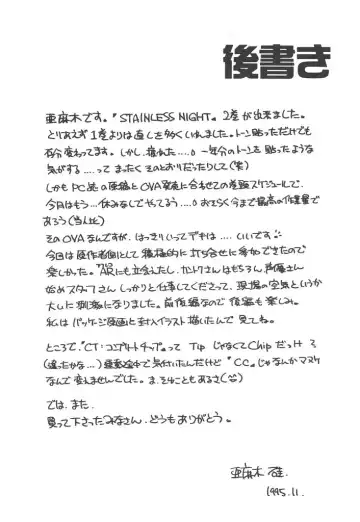 後書き
亜麻木です。『STAINLESS NIGHT』2巻が出来ました。
とりあえず1巻よりは直しを多くいれました。トーン貼っただけでも
随分変わってます。しかし、疲れた……。一年分のトーンを貼ったような
気がする……ってまったくそのとおりだったりして(笑)
しかもPC版の原稿とOVA発売と合わせての進行スケジュールで、
今月はもう…休みなしでやってるう……。おそらく今まで最高の作業量で
あろう(当人比)
そのOVAなんですが、はっきりいってデキは……いいです。
今回は原作者側として積極的に打ち合せに参加できたので
楽しかった。ARにも立会したし、カントクさんはもちろん声優さん
始めスタッフさんしっかりと仕事してくださって、現場の空気というか
大いに刺激になりました。前後編なので後編も楽しみ。
私はパッケージ原画と封入イラスト描いたんで見てね。
ところで、"CT:コンプリートチップ"って TipじゃなくてChipだっけ?
(違ったかな…)連載途中で気付いたんだけど"CC"じゃなんかマヌケ
なんで変えませんでした。ま、そんなこともあるさ
では、また。
買って下さったみなさん、どうもありがとう。
亜麻木 硅
1995.11.